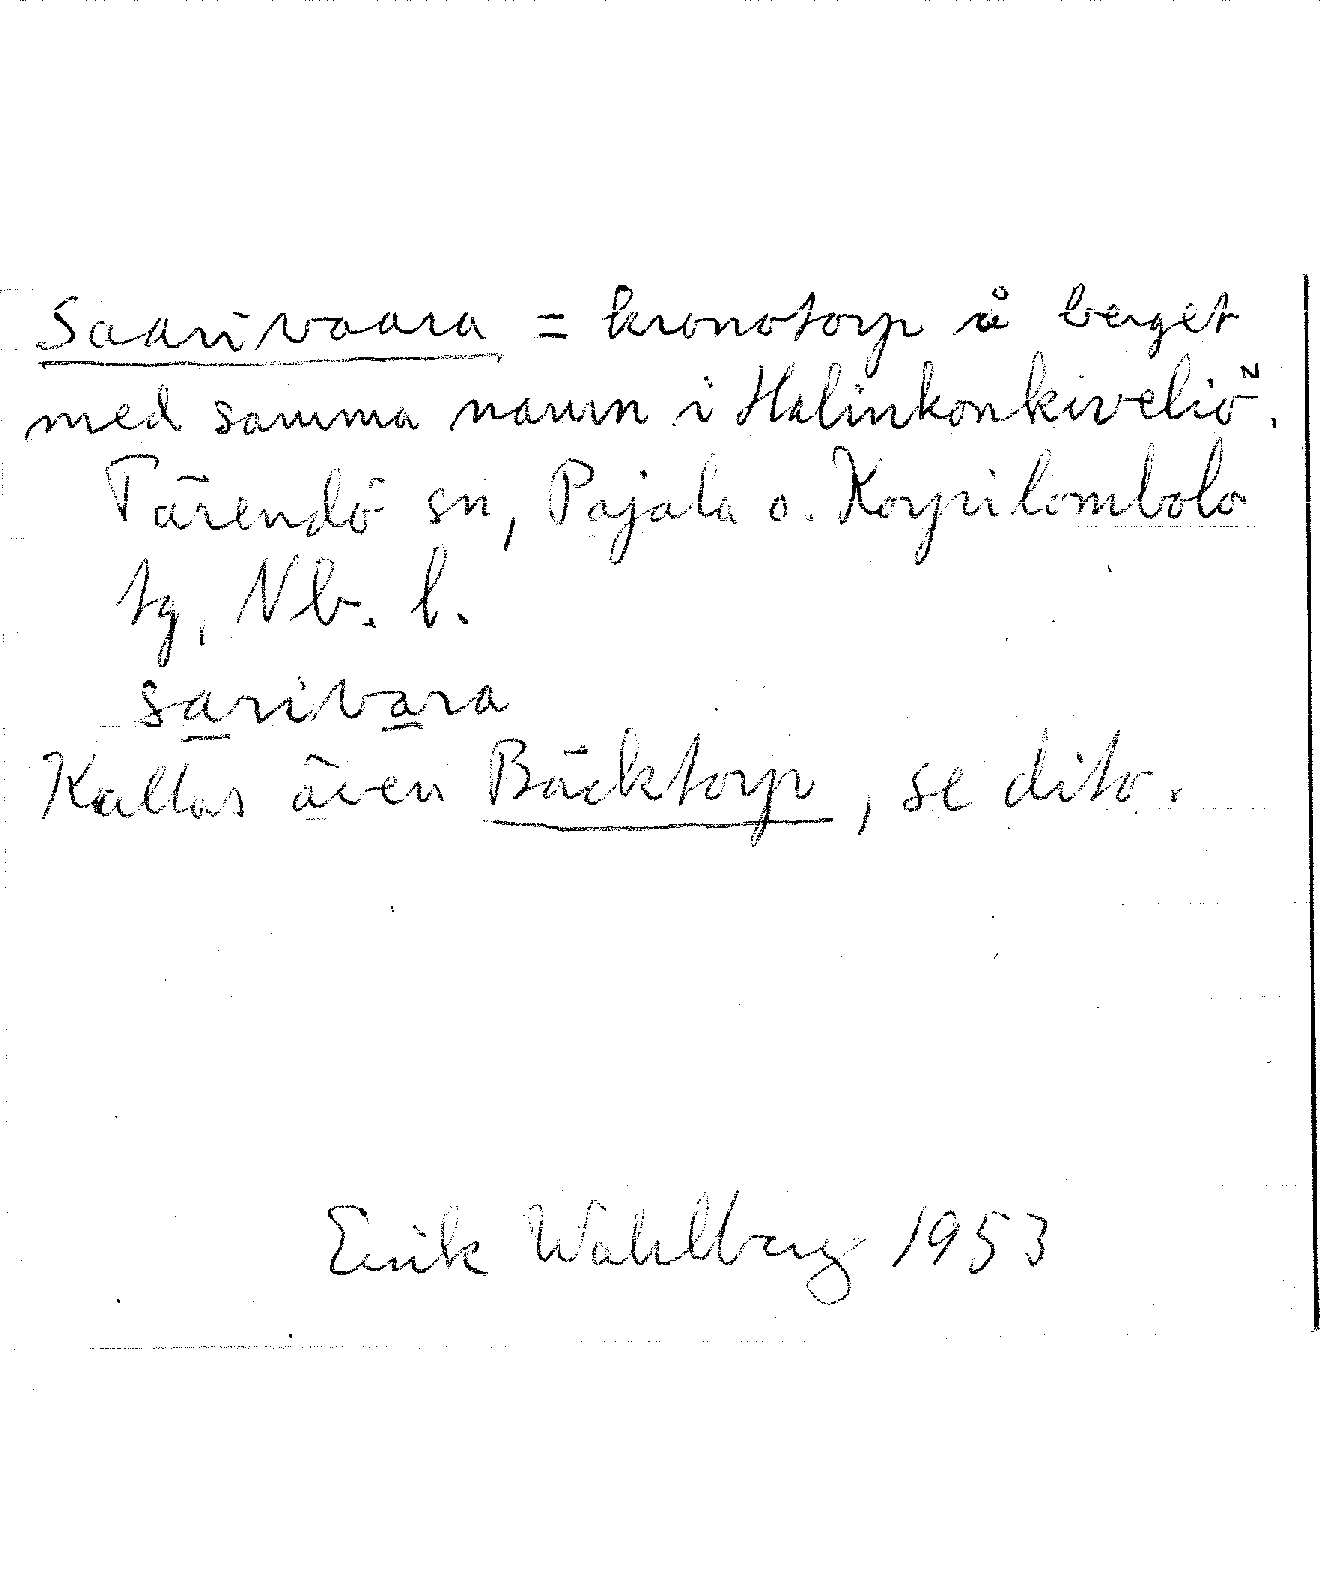 Saarivaara = kronotorp å berget
med samma namn i Halinkonkiveliö.
Tärendö sn, Pajala o. Korpilombolo
tg, Nb. l.
sa̲riva̲ra
Kallas även Bäcktorp, se dito.
Erik Wahlberg 1953